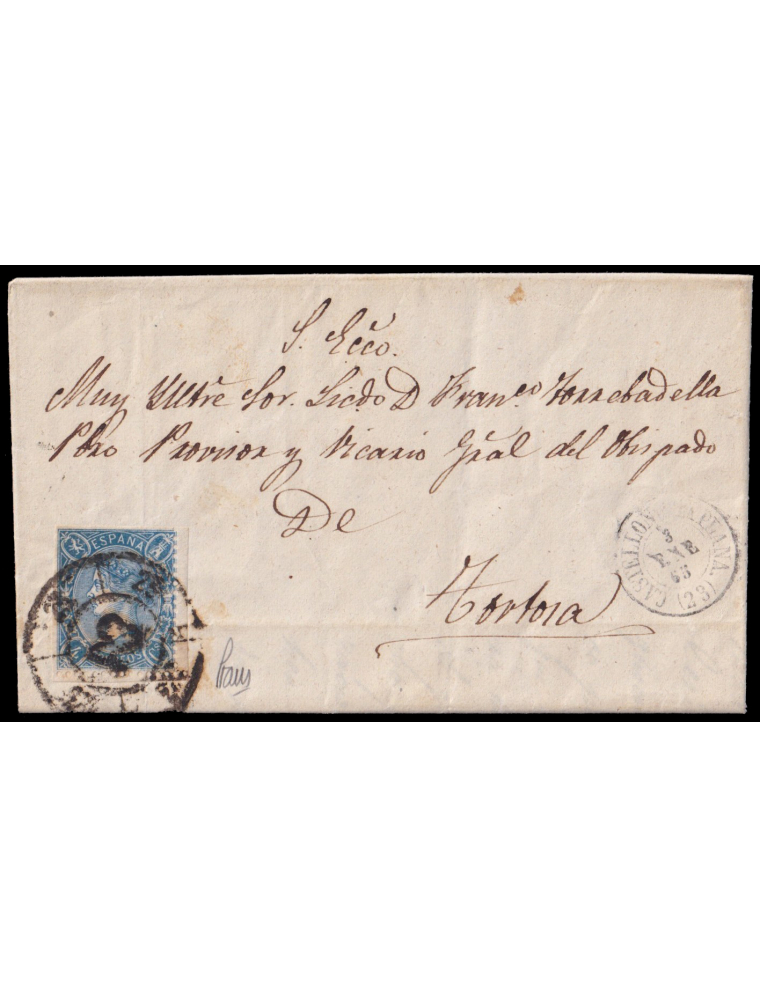 S. Ecco.
Muy Ylltre Sor. Licdo D. Franco Torrebadella
Pbro Provisor y Vicario Gral del Obispado
De
Tortosa
ESPAÑA
CASTELLON DE LA PLANA (23)
3
ENE
65